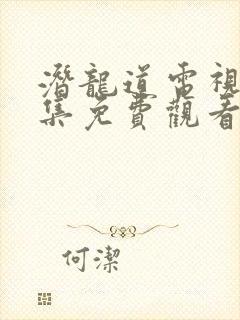 潛龍道電視
集免費觀看
何潔